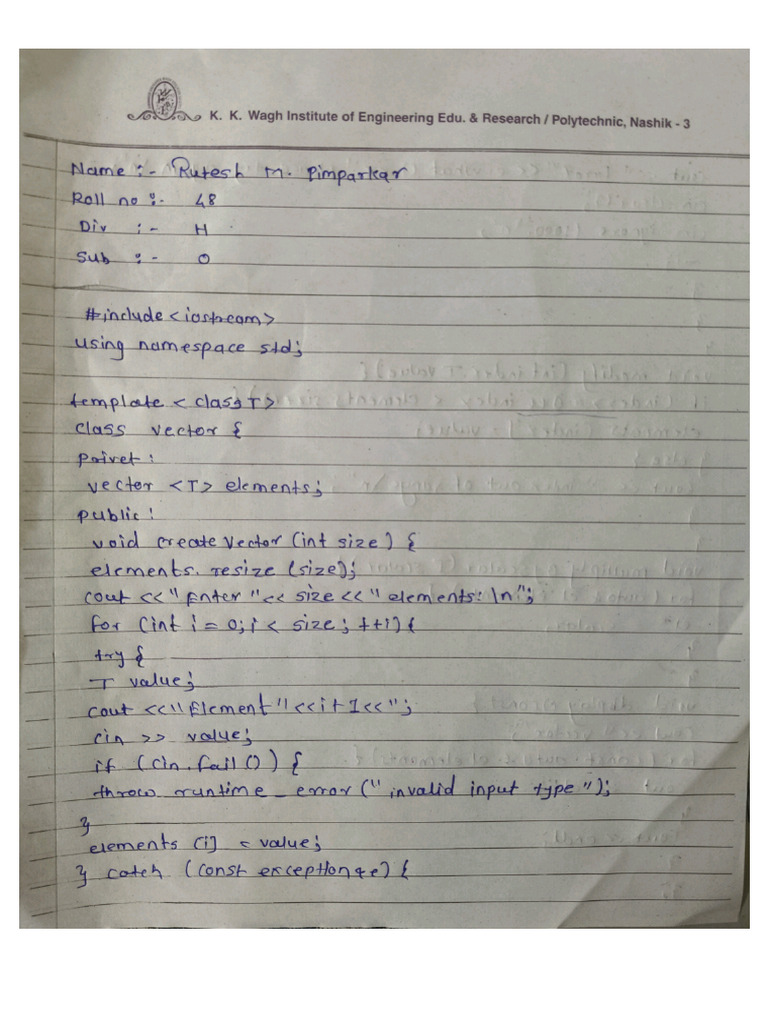 K. K. Wagh Institute of Engineering Edu. & Research / Polytechnic, Nashik - 3
Name :- Rutesh M. Pimparkar
Roll no :- 48
Div :- H
Sub :- O
#include <iostream>
using namespace std;
template < class T >
class vector {
poivet :
vector <T> elements;
public :
void create vector (int size) {
elements. resize (size);
cout << " Enter "<< size << " elements: \n";
for (int i = 0; i < size ; ++i) {
try {
T value;
cout <<"Element"<<i+1<<";
cin >> value;
if (cin.fail ()) {
throw runtime_error (" invalid input type ");
}
elements [i] = value;
} catch (const exception &e) {